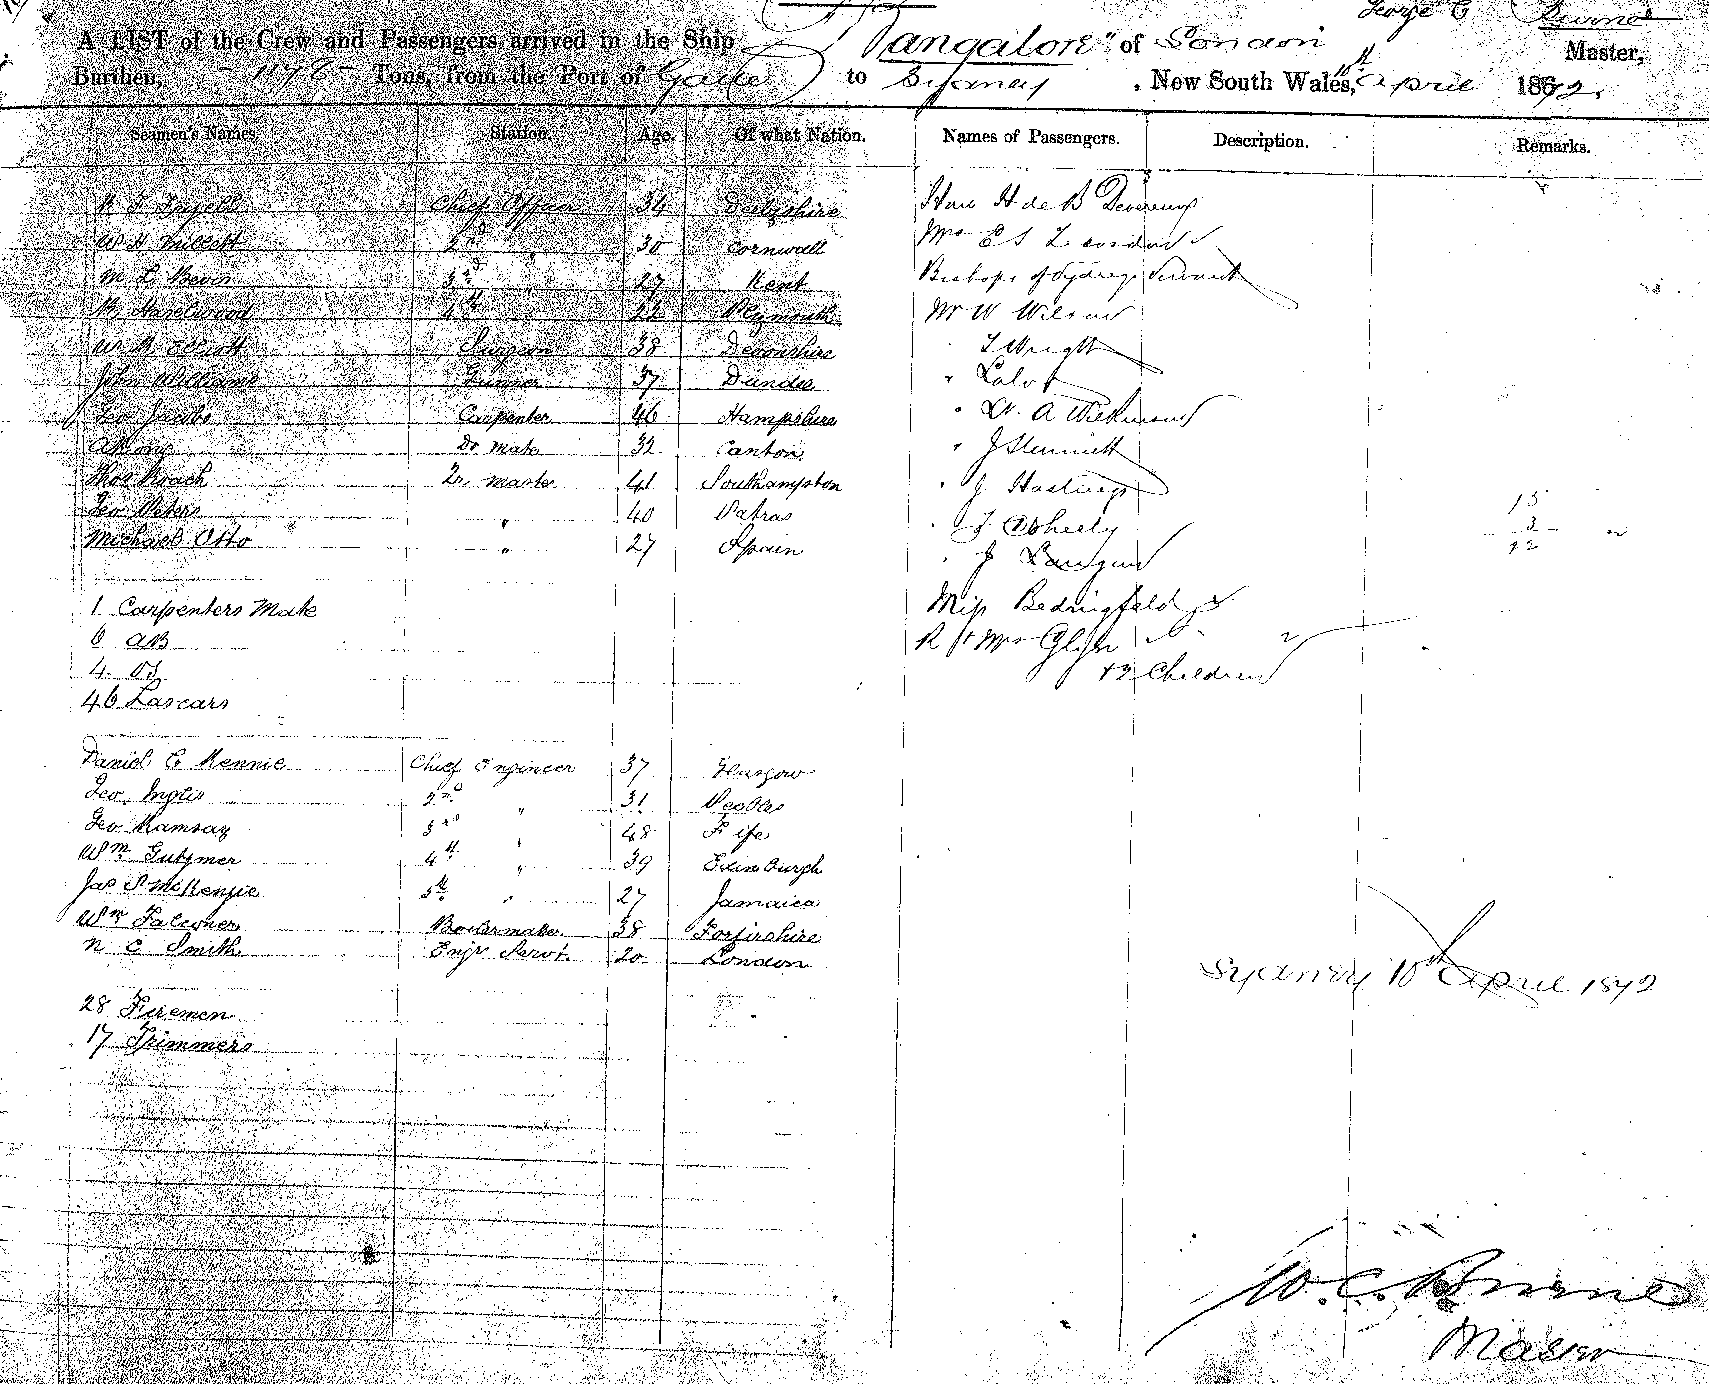 George C Burne
A LIST of the Crew and Passengers arrived in the Ship "Vangalore" of London Master,
Burthen, Tons, from the Port of Galle to Sydney, New South Wales, April 1872.
Seamen's Names. Station. Age. Of what Nation. Names of Passengers. Description. Remarks.
Chief Officer 34 Derbyshire Hon H de B Devereux
W H 2nd " 30 Cornwall Mrs E S
M L Bevis 3rd " 27 Kent Bishop of Sydney Servant
Hazelwood 4th " 22 Plymouth Mr W Wilson
W Elliott Surgeon 38 Devonshire T Wright
John Williams Gunner 37 Dundee " Lalor
Geo Jacobs Carpenter 46 Hampshire " A Wilkinson
Do Mate 32 Canton " J
Thos Roach Qr. Master 41 Southampton " J Hastings
Geo Peters " 40 Patras " J
Michael Otto " 27 Spain " J
1 Carpenters Mate Miss Bedingfeld
6 AB R & Mrs
4 OS + 2 Children
46 Lascars
15
3
12
Daniel C Rennie Chief Engineer 37 Glasgow
Geo. Inglis 2nd " 31 Peebles
Geo Ramsay 3rd " 48 Fife
Wm Gutymer 4th " 39 Edinburgh
Jas S McKenzie 5th " 27 Jamaica
Wm Falconer Boilermaker 38 Forfirshire
N C Smith Engr Servt. 20 London
28 Firemen
17 Trimmers
Sydney 10th April 1872
W. C. Burne
Master